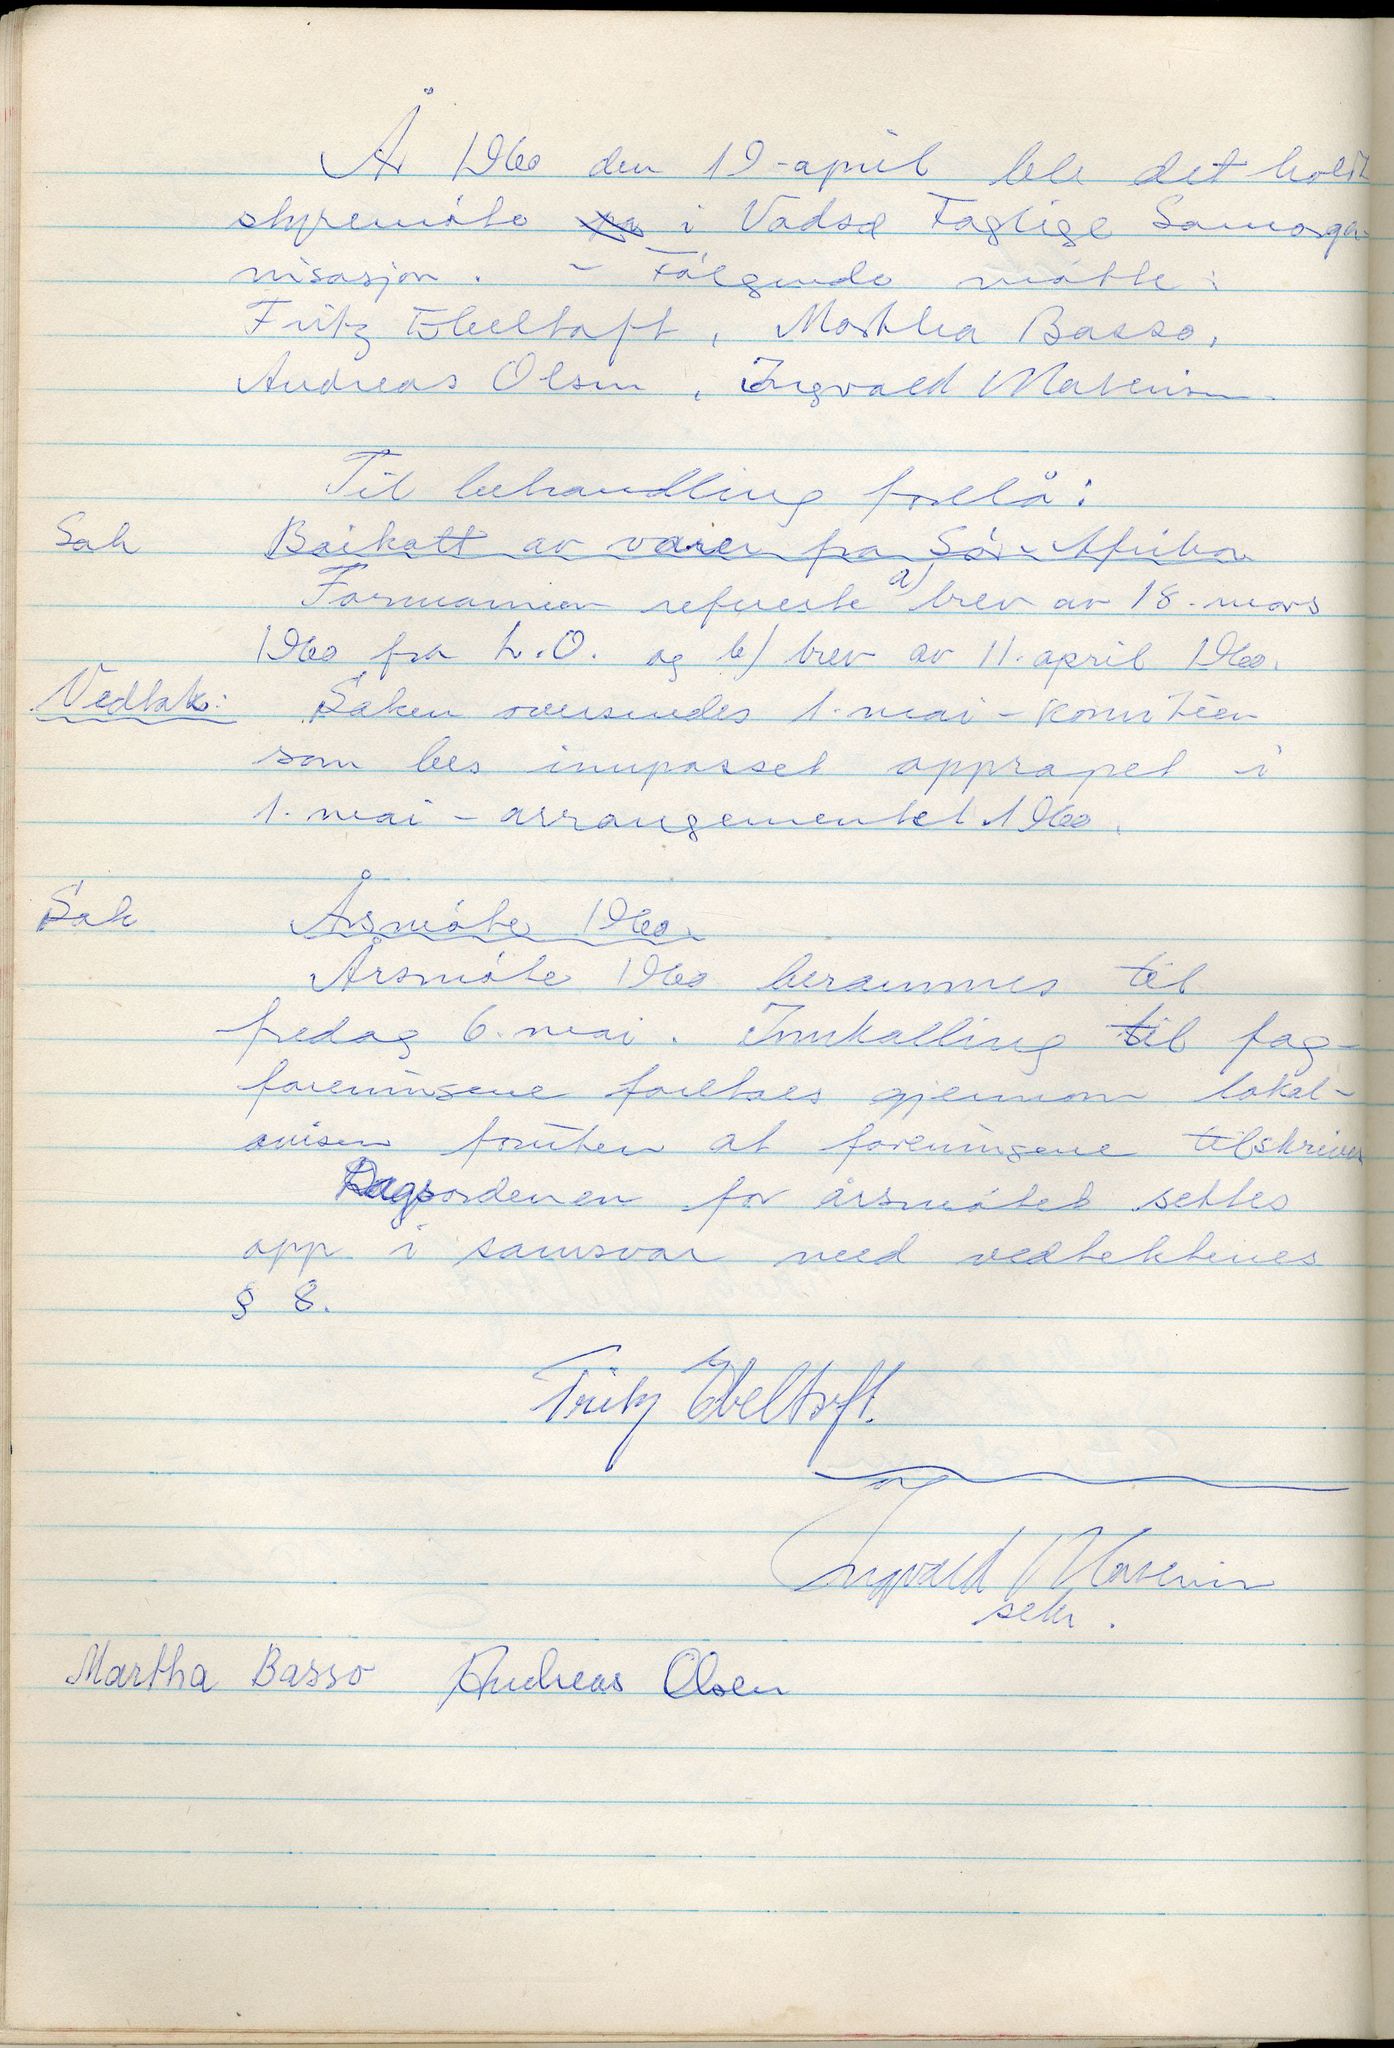 År 1960 den 19-april ble det holdt
styremöte i Vadsø Faglige Samorga-
nisasjon. - Følgende møtte:
Fritz Ebeltoft, Martha Basso,
Andreas Olsen, Ingvald Mathisen.
Til behandling forelå:
Sak Boikott av varer fra Sör-Afrika
Formannen refererte a) brev av 18. mars
1960 fra L.O. og b) brev av 11. april 1960.
Vedtak: Saken oversendes 1. mai-komitéen
som bes innpasset oppropet i
1. mai-arrangementet 1960.
Sak Årsmöte 1960.
Årsmöte 1960 berammes til
fredag 6. mai. Innkalling til fag-
foreningene foretaes gjennom lokal-
avisen foruten at foreningene tilskrives
Dagsordenen for årsmötet settes
opp i samsvar med vedtektenes
§ 8.
Fritz Ebeltoft.
Ingvald Mathisen
sekr.
Martha Basso Andreas Olsen